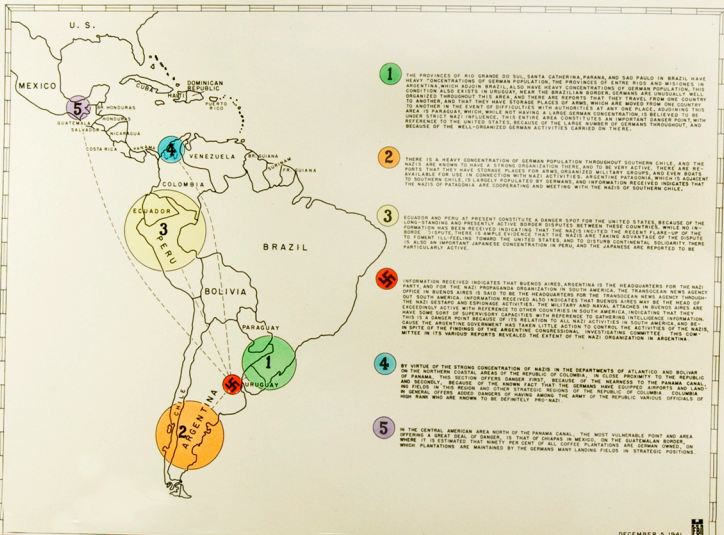 U. S.
MEXICO
CUBA
HAITI
DOMINICAN
REPUBLIC
PUERTO
RICO
5
BR. HONDURAS
HONDURAS
GUATEMALA
SALVADOR
NICARAGUA
COSTA RICA
PANAMA
4
VENEZUELA
BR. GUIANA
SURINAM
FR. GUIANA
COLOMBIA
ECUADOR
3
PERU
BRAZIL
BOLIVIA
PARAGUAY
1
URUGUAY
CHILE
ARGENTINA
2
1
THE PROVINCES OF RIO GRANDE DO SUL, SANTA CATHERINA, PARANA, AND SAO PAULO IN BRAZIL HAVE
HEAVY CONCENTRATIONS OF GERMAN POPULATION. THE PROVINCES OF ENTRE RIOS AND MISIONES IN
ARGENTINA, WHICH ADJOIN BRAZIL, ALSO HAVE HEAVY CONCENTRATIONS OF GERMAN POPULATION. THIS
CONDITION ALSO EXISTS IN URUGUAY, NEAR THE BRAZILIAN BORDER. GERMANS ARE UNUSUALLY WELL
ORGANIZED THROUGHOUT THIS AREA, AND THERE ARE REPORTS THAT THEY TRAVEL FROM ONE COUNTRY
TO ANOTHER, AND THAT THEY HAVE STORAGE PLACES OF ARMS, WHICH ARE MOVED FROM ONE COUNTRY
TO ANOTHER IN THE EVENT OF DIFFICULTIES WITH AUTHORITIES AT ANY ONE PLACE. ADJOINING THIS
AREA IS PARAGUAY, WHICH, WHILE NOT HAVING A LARGE GERMAN CONCENTRATION, IS BELIEVED TO BE
UNDER STRICT NAZI INFLUENCE. THIS ENTIRE AREA CONSTITUTES AN IMPORTANT DANGER POINT, WITH
REFERENCE TO THE UNITED STATES, BECAUSE OF THE LARGE NUMBER OF GERMANS THROUGHOUT, AND
BECAUSE OF THE WELL-ORGANIZED GERMAN ACTIVITIES CARRIED ON THERE.
2
THERE IS A HEAVY CONCENTRATION OF GERMAN POPULATION THROUGHOUT SOUTHERN CHILE, AND THE
NAZIS ARE KNOWN TO HAVE A STRONG ORGANIZATION THERE, AND TO BE VERY ACTIVE. THERE ARE RE-
PORTS THAT THEY HAVE STORAGE PLACES FOR ARMS, ORGANIZED MILITARY GROUPS, AND EVEN BOATS
AVAILABLE FOR USE IN CONNECTION WITH NAZI ACTIVITIES. ARGENTINE PATAGONIA, WHICH IS ADJACENT
TO SOUTHERN CHILE, IS LARGELY POPULATED BY GERMANS, AND INFORMATION RECEIVED INDICATES THAT
THE NAZIS OF PATAGONIA ARE COOPERATING AND MEETING WITH THE NAZIS OF SOUTHERN CHILE.
3
ECUADOR AND PERU AT PRESENT CONSTITUTE A DANGER SPOT FOR THE UNITED STATES, BECAUSE OF THE
LONG-STANDING AND PRESENTLY ACTIVE BORDER DISPUTES BETWEEN THESE COUNTRIES. WHILE NO IN-
FORMATION HAS BEEN RECEIVED INDICATING THAT THE NAZIS INCITED THE RECENT FLARE-UP OF THE
BORDE DISPUTE, THERE IS AMPLE EVIDENCE THAT THE NAZIS ARE TAKING ADVANTAGE OF THE DISPUTE
TO FOMENT ILL-FEELING TOWARD THE UNITED STATES, AND TO DISTURB CONTINENTAL SOLIDARITY. THERE
IS ALSO AN IMPORTANT JAPANESE CONCENTRATION IN PERU, AND THE JAPANESE ARE REPORTED TO BE
PARTICULARLY ACTIVE.
INFORMATION RECEIVED INDICATES THAT BUENOS AIRES, ARGENTINA IS THE HEADQUARTERS FOR THE NAZI
PARTY, AND FOR THE NAZI PROPAGANDA ORGANIZATION IN SOUTH AMERICA. THE TRANSOCEAN NEWS AGENCY
OFFICE IN BUENOS AIRES IS SAID TO BE THE HEADQUARTERS FOR THE TRANSOCEAN NEWS AGENCY THROUGH-
OUT SOUTH AMERICA. INFORMATION RECEIVED ALSO INDICATES THAT BUENOS AIRES MAY BE THE HEAD OF
THE NAZI GESTAPO AND ESPIONAGE ACTIVITIES. THE MILITARY AND NAVAL ATTACHES IN BUENOS AIRES ARE
EXCEEDINGLY ACTIVE WITH REFERENCE TO OTHER COUNTRIES IN SOUTH AMERICA, INDICATING THAT THEY
HAVE SOME SORT OF SUPERVISORY CAPACITIES WITH REFERENCE TO GATHERING INTELLIGENCE INFORMATION.
THIS IS A DANGER POINT BECAUSE OF ITS RELATION TO ALL NAZI ACTIVITIES IN SOUTH AMERICA, AND BE-
CAUSE THE ARGENTINE GOVERNMENT HAS TAKEN LITTLE ACTION TO CONTROL THE ACTIVITIES OF THE NAZIS,
IN SPITE OF THE FINDINGS OF THE ARGENTINE CONGRESSIONAL INVESTIGATING COMMITTEE. THIS COM-
MITTEE IN ITS VARIOUS REPORTS REVEALED THE EXTENT OF THE NAZI ORGANIZATION IN ARGENTINA.
4
BY VIRTUE OF THE STRONG CONCENTRATION OF NAZIS IN THE DEPARTMENTS OF ATLANTICO AND BOLIVAR
ON THE NORTHERN COASTAL AREAS OF THE REPUBLIC OF COLOMBIA, IN CLOSE PROXIMITY TO THE REPUBLIC
OF PANAMA, THIS SECTION OFFERS DANGER FIRST, BECAUSE OF THE NEARNESS TO THE PANAMA CANAL,
AND SECONDLY, BECAUSE OF THE KNOWN FACT THAT THE GERMANS HAVE EQUIPPED AIRPORTS AND LAND-
ING FIELDS IN THIS REGION AND OTHER STRATEGIC REGIONS OF THE REPUBLIC OF COLOMBIA. COLOMBIA
IN GENERAL OFFERS ADDED DANGERS OF HAVING AMONG THE ARMY OF THE REPUBLIC VARIOUS OFFICIALS OF
HIGH RANK WHO ARE KNOWN TO BE DEFINITELY PRO-NAZI.
5
IN THE CENTRAL AMERICAN AREA NORTH OF THE PANAMA CANAL, THE MOST VULNERABLE POINT AND AREA
OFFERING A GREAT DEAL OF DANGER, IS THAT OF CHIAPAS IN MEXICO, ON THE GUATEMALAN BORDER,
WHERE IT IS ESTIMATED THAT NINETY PER CENT OF ALL COFFEE PLANTATIONS ARE GERMAN OWNED, ON
WHICH PLANTATIONS ARE MAINTAINED BY THE GERMANS MANY LANDING FIELDS IN STRATEGIC POSITIONS.
DECEMBER 5, 1941